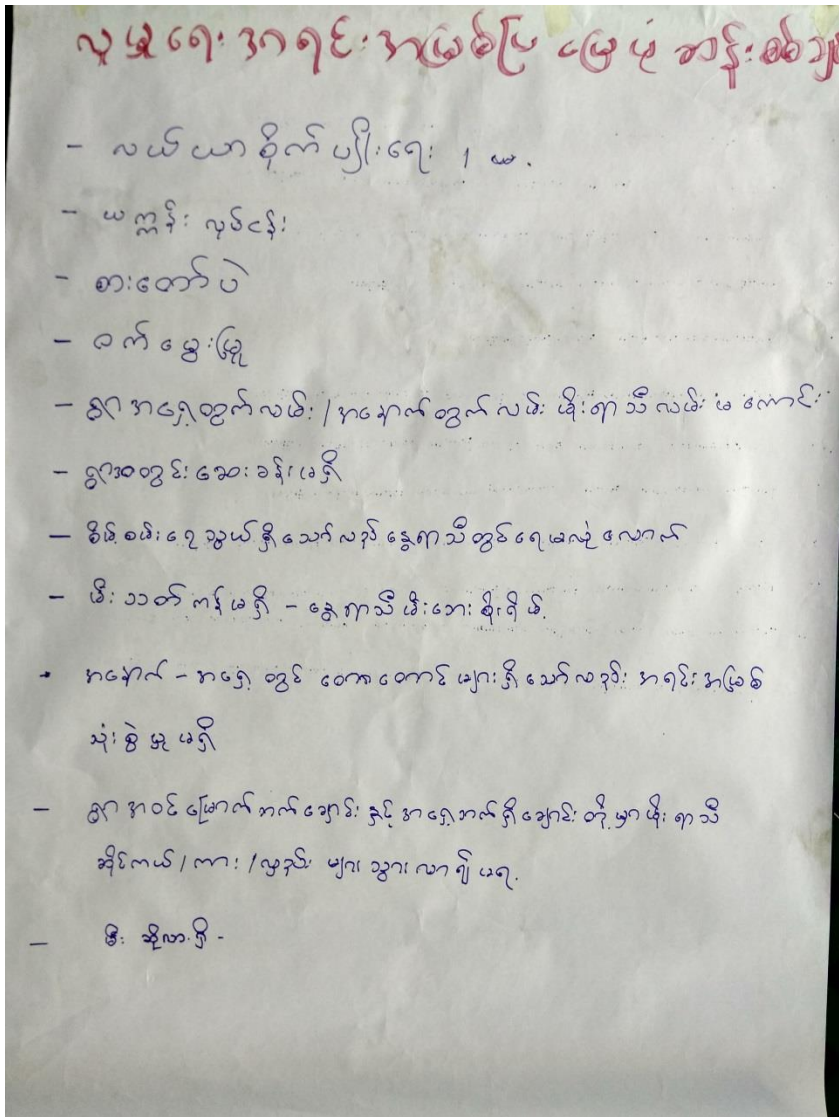 လူမှုရေး အရင်းအမြစ်ပြ မြေပုံ ဆန်းစစ်ချ
- လယ်ယာစိုက်ပျိုးရေး ၊ ယာ.
- ယက္ကန်း လုပ်ငန်း
- စားတော်ပဲ
- ဝက်မွေးမြူ
- ရွာအရှေ့ထွက်လမ်း / အနောက်ထွက်လမ်း မိုးရာသီ လမ်းမကောင်း
- ရွာအတွင်း ဆေးခန်းမရှိ
- စိမ့်စမ်းရေသွယ် ရှိသော်လည်း နွေရာသီတွင် ရေမလုံလောက်
- မီးသတ်ကန်မရှိ - နွေရာသီမီးဘေးစိုးရိမ်
- အနောက် - အရှေ့ တွင် တောတောင်များ ရှိသော်လည်း အရင်းအမြစ်
သုံးစွဲမှုမရှိ
- ရွာအဝင်မြောက်ဘက်ချောင်း နှင့် အရှေ့ဘက်ရှိချောင်း တို့မှာ မိုးရာသီ
ဆိုင်ကယ် / ကား / လှည်း များ သွားလာ၍ မရ.
- မီး ဆိုလာရှိ -